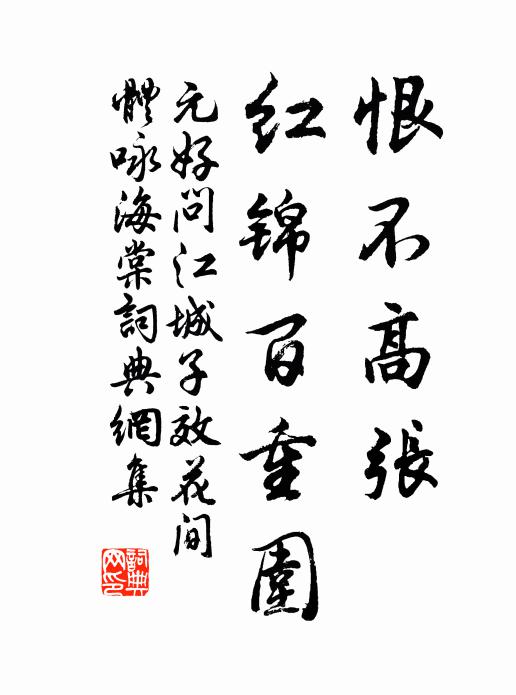 恨不高張
紅錦百重圍
元好問江城子效花间
體咏海棠詞典網集
詞典網印